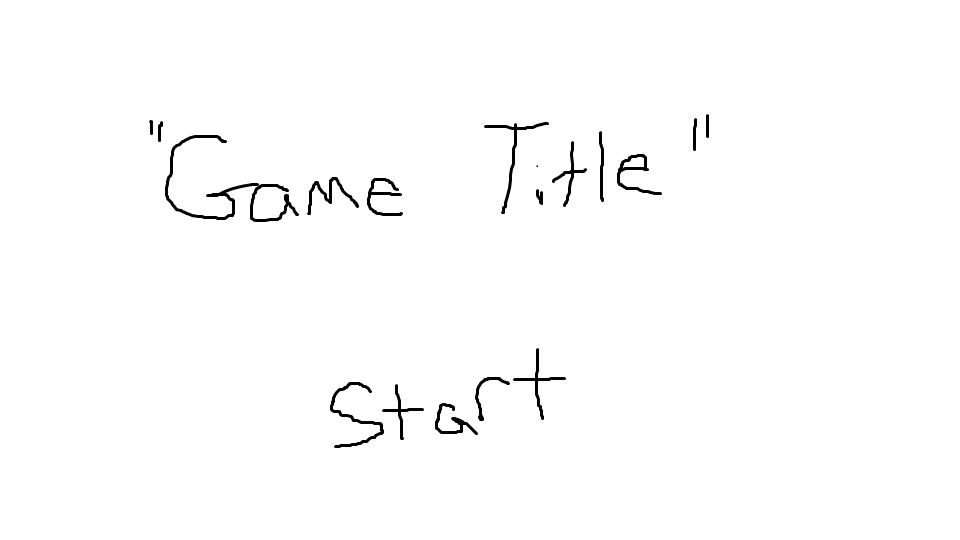 "Game Title"
Start